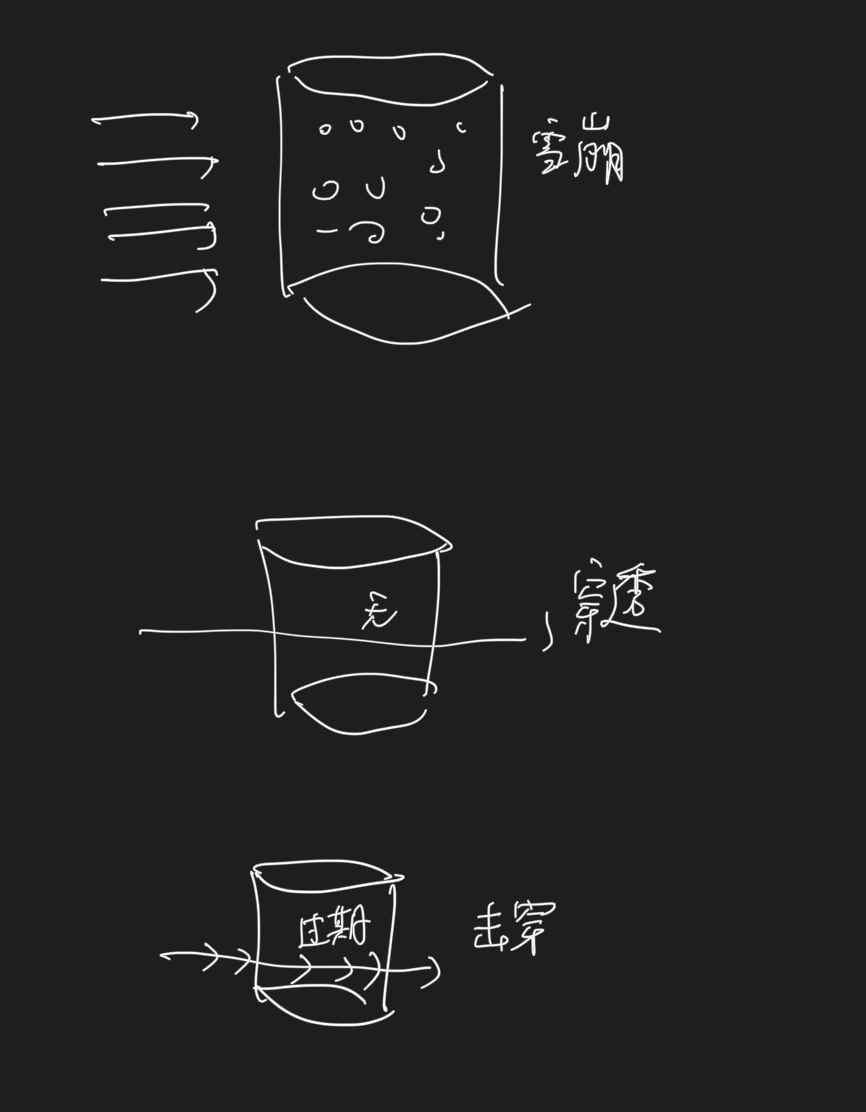 雪崩
无
穿透
过期
击穿